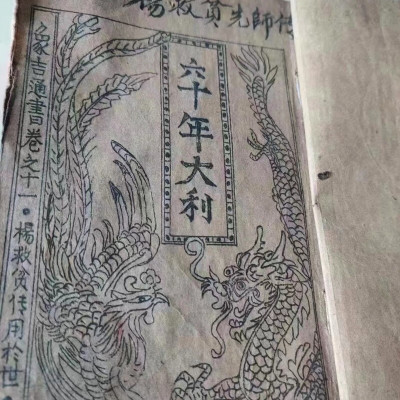 楊救貧先師傳
六十年大利
象吉通書卷之十一。楊救貧传用於世